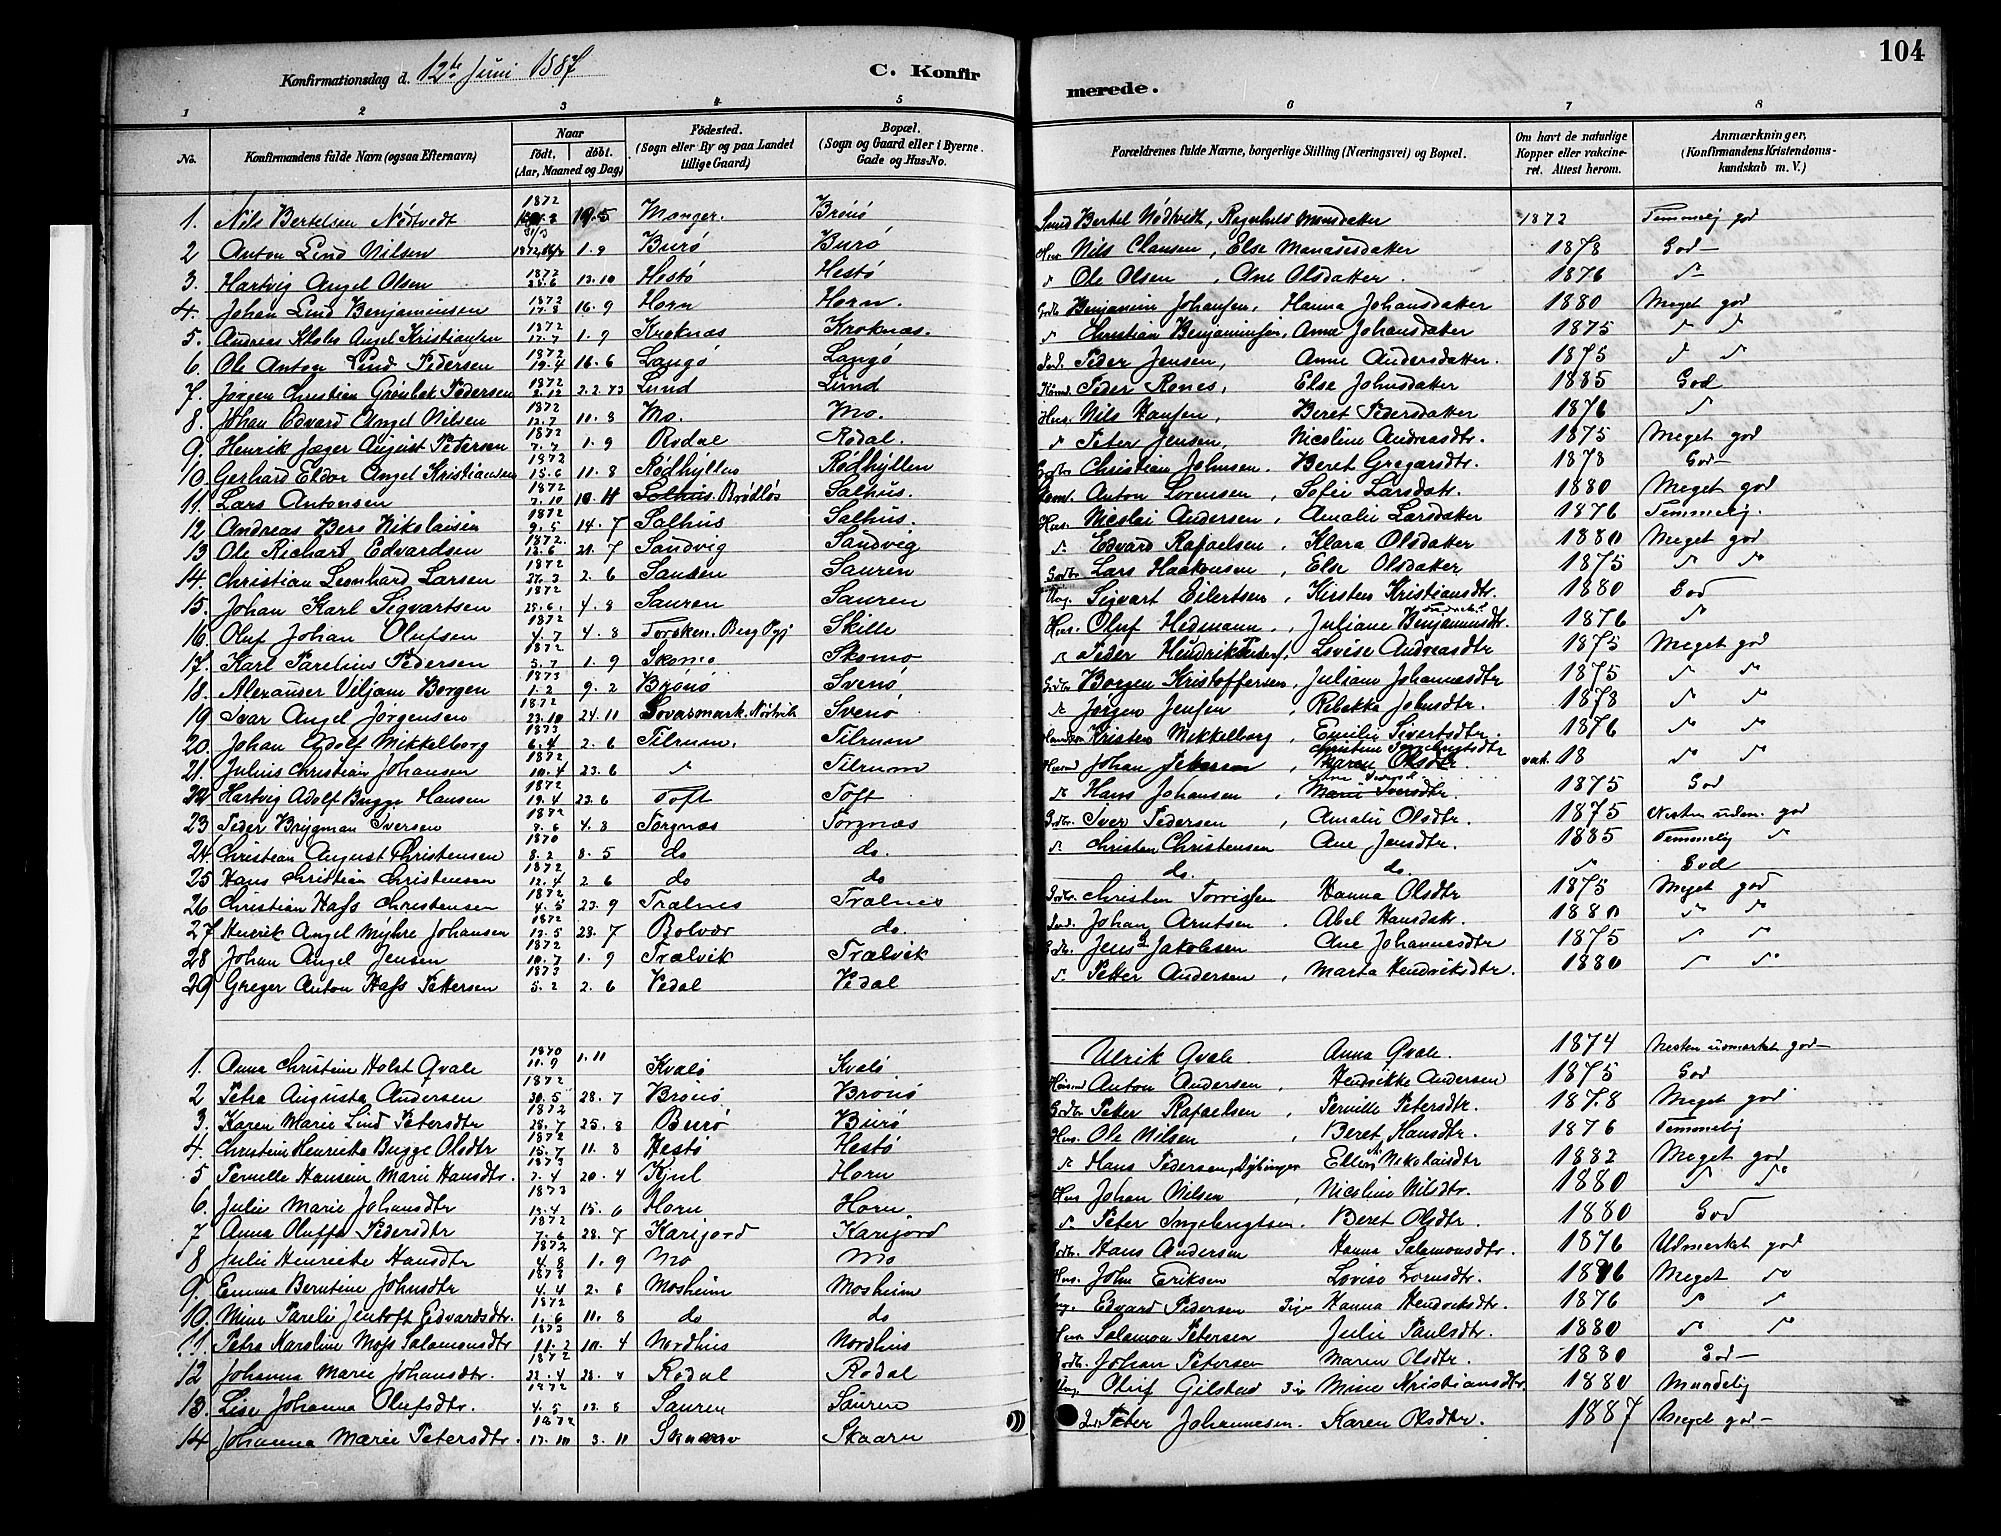 104
Konfirmationsdag d. 12te Juni 1887 C. Konfirmerede.
1 2 3 4 5 6 7 8
No. Konfirmandens fulde Navn (ogsaa Efternavn) Naar født, døbt. (Aar, Maaned og Dag) Fødested. (Sogn eller By og paa Landet tillige Gaard) Bopæl. (Sogn og Gaard eller i Byerne Gade og Hus-No. Forældrenes fulde Navne, borgerlige Stilling (Næringsvei) og Bopæl. Om havt de naturlige Kopper eller vakcineret. Attest herom. Anmærkninger, (Konfirmandens Kristendomskundskab m. V.)
1. Nils Bertelsen Nødtvedt 1872 19.5 Manger. Brønø Bertel Nødtvedt, 1872 Temmelig god
2 Anton Lind Nilsen 1872 1.9 Burø Burø Hus. Nils Clausen, Else 1878 God
3. Hartvig Angel Olsen 1872 25.6 13.10 Hestø Hestø " Ole Olsen, Ane Olsdatter. 1876 "
4. Johan Lind Benjaminsen 1872 17.8 16.9 Horn Horn. Gdbr. Benjamin Johansen, Hanna Johansdatter 1880 Meget god
5. Andreas Angel Kristiansen 1872 1.9 Kroknæs Kroknæs. " Christian Benjaminsen, Anne Johansdatter 1875 " "
6. Ole Anton Lind Pedersen 1872 19.4 16.6 Langø Langø Ind. Peder Jensen, Anne Andersdatter. 1875 " "
7. Jørgen Christian Grønbek Pedersen 1872 2.12 2.2.73 Lund Lund Peder Rones, Else Johnsdatter 1885 God
8. Johan Edvard Angel Nilsen 1872 12.7 11.8 Mo. Mo. Hus. Nils Hansen, Beret Pedersdatter 1876 "
9. Henrik Jæger August Petersen 1872 7.7 1.9 Rodal Rodal. " Peter Jensen, Nicoline Andreasdtr. 1875 Meget god
10. Gerhard Eldor Angel Kristiansen 1872 15.6 11.8 Rødhyllen Rødhyllen Gdbr. Christian Johnsen. Beret Gregersdtr. 1878 God
11. Lars Antonsen 1872 7.10 10.11 Salhus. Brødløs Salhus. Anton Lorensen, Sofie Larsdatr. 1880 Meget god
12 Andreas Berg Nikolaisen 1872 9.5 14.7 Salhus Salhus. Hus. Nicolai Andersen, Amalie Larsdatter 1876 Temmelig.
13 Ole Richard Edvardsen 1872. 12.6 21.7 Sandvig Sandvig " Edvard Rafaelsen, Klara Olsdatter 1880 Meget god
14. Christian Leonhard Larsen 1872 27.3 2.6 Sauren Sauren Gdbr. Lars Haakonsen, Else Olsdatter 1875 " "
15. Johan Karl Sigvartsen 1872 25.6. 4.8 Sauren Sauren Sigvart Eilertsen, Kirsten Kristiansdtr. 1880 God
16. Oluf Johan Olufsen 1872 4.7 4.8 Torsken. Berg Pgj Skille Hus. Oluf Hedmann, Juliane Benjaminsdtr 1876 "
17. Karl Parelius Pedersen 1872 5.7 1.9 Skomo Skomo " Peder Lovise Andreasdtr 1875 Meget god
18. Alexander Viljam Borgen 1873 1.2 9.2 Brønø Svenø Gdbr Borgen Kristoffersen, Juliane Johannesdtr 1875 " "
19 Ivar Angel Jørgensen 1872 23.10 24.11 Svenø " Jørgen Jensen, Rebekka Johnsdtr. 1878 " "
20. Johan Adolf Mikkelborg 1873 6.4 2.6 Tilrum. Tilrum Kristen Mikkelborg, Emilie Sivertsdtr. 1876 " "
21. Julius Christian Johansen 1872 10.4 23.6 " Tilrum Johan Petersen, Maren Olsdtr. vak. 18 " "
22 Hartvig Adolf Bugge Hansen 1872 19.4 23.6 Toft Toft " Hans Johansen, Marie Iversdtr. 1875 God
23. Peder Brygman Iversen 1872 8.6 4.8 Torgnæs Torgnæs Gdbr. Iver Pedersen, Amalie Olsdtr. 1875 Nesten udm. god
24. Christian August Christensen 1870 8.2 8.5 do do. " Christen Christensen Ane Jensdtr. 1885 Temmelig "
25 Hans Christian Christensen 1872 12.4 2.6 do do do. do. " God
26 Christian Hass Christensen 1872 4.5 23.9 Trælnes Trælnes Gdbr. Christen Hanna Olsdtr 1875 Meget god
27 Henrik Angel Myhre Johansen 1872 12.5 28.7 Bolvær do. Ind. Johan Arntsen. Abel Hansdatr. 1880 " "
28 Johan Angel Jensen 1872 10.7 1.9 Trælvik Trælvik Gdbr. Jens Jakobsen Ane Johannesdtr 1875 " "
29 Greger Anton Hass Pettersen 1873 5.2 2.6 Vedal Vedal " Petter Andersen, Marta Hendriksdtr. 1880 " "
1. Anna Christine Holst Qvale 1870 11.9 1.11 Kvalø Kvalø. Ulrik Qvale Anna Qvale. 1874 Nesten udmærket god
2 Petra Augusta Andersen 1872 30.5 28.7 Brønø Brønø Husmd Anton Andersen, Hendrikke Andersen 1875 God
3. Karen Marie Lind Petersdtr 1872 28.7 25.8 Burø Burø Gdbr Peter Rafaelsen, Pernille Petersdtr. 1878 Meget god
4. Christine Henriette Bugge Olsdtr 1872 15.7 11.8 Hestø Hestø Hus. Ole Nilsen, Beret Hansdtr. 1876 Temmelig
5 Pernille Hansine Marie Hansdtr. 1873 7.4 20.4 Kjul Horn " Hans Pedersen, Ellen Nikolaisdtr 1882 Meget god
6. Julie Marie Johansdtr 1873 13.4 15.6 Horn Horn. Hus Johan Nilsen, Nicoline Nilsdtr. 1880 " "
7 Anna Oluffa Pedersdtr 1872 7.6 28.7 Karijord Karijord " Peter Ingebrigtsen, Beret Olsdtr. 1880 God
8 Julie Henriette Hansdtr 1872 4.8 1.9 Mo Mo Gdbr. Hans Andersen Hanna Salamonsdtr. 1876 Udmærket god
9. Emma Berntine Johnsdtr 1873 4.4 2.6 Mosheim Mosheim Hus. John Eriksen Lovise 1876 Meget "
10. Mine Parelie Jentoft Edvardsdtr. 1872 1.6 11.8 do do Edvard Pedersen Hanna Hendriksdtr. 1876 " "
11. Petra Karoline Moss Salamonsdtr 1873 11.2 10.4 Nordhus Nordhus Hus Salamon Petersen Julie Paulsdtr. 1880 " "
12 Johanna Marie Johansdtr. 1872 22.4 Rodal Rodal Gdbr. Johan Petersen Maren Olsdtr. 1880 God
13. Lise Johanna Olufsdtr. 1872 4.5 12.8 Sauren Sauren Oluf Gilstad Mine Kristiansdtr 1880 Maadelig
14 Johanna Marie Petersdtr. 1872 17.10 3.11 Skaaren Skaaren Peter Johannesen. Karen Olsdtr. 1887 Meget god